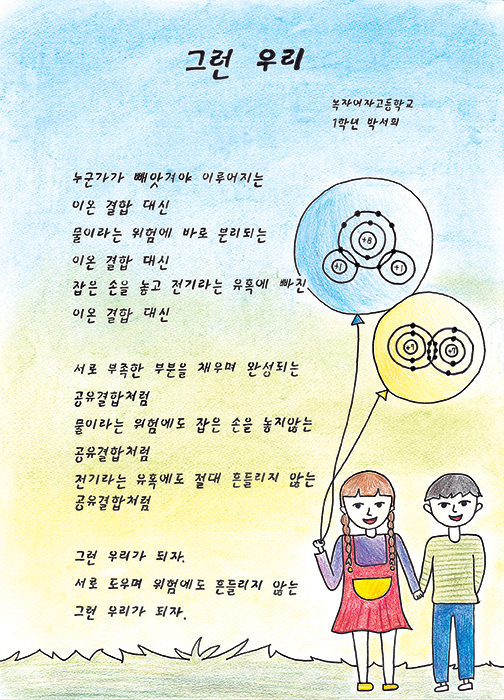 그런 우리
복자여자고등학교
1학년 박서희
누군가가 빼앗겨야 이루어지는
이온 결합 대신
물이라는 위험에 바로 분리되는
이온 결합 대신
잡은 손을 놓고 전기라는 유혹에 빠진
이온 결합 대신
+8
+1 +1
+7 +7
서로 부족한 부분을 채우며 완성되는
공유결합처럼
물이라는 위험에도 잡은 손을 놓지않는
공유결합처럼
전기라는 유혹에도 절대 흔들리지 않는
공유결합처럼
그런 우리가 되자.
서로 도우며 위험에도 흔들리지 않는
그런 우리가 되자.